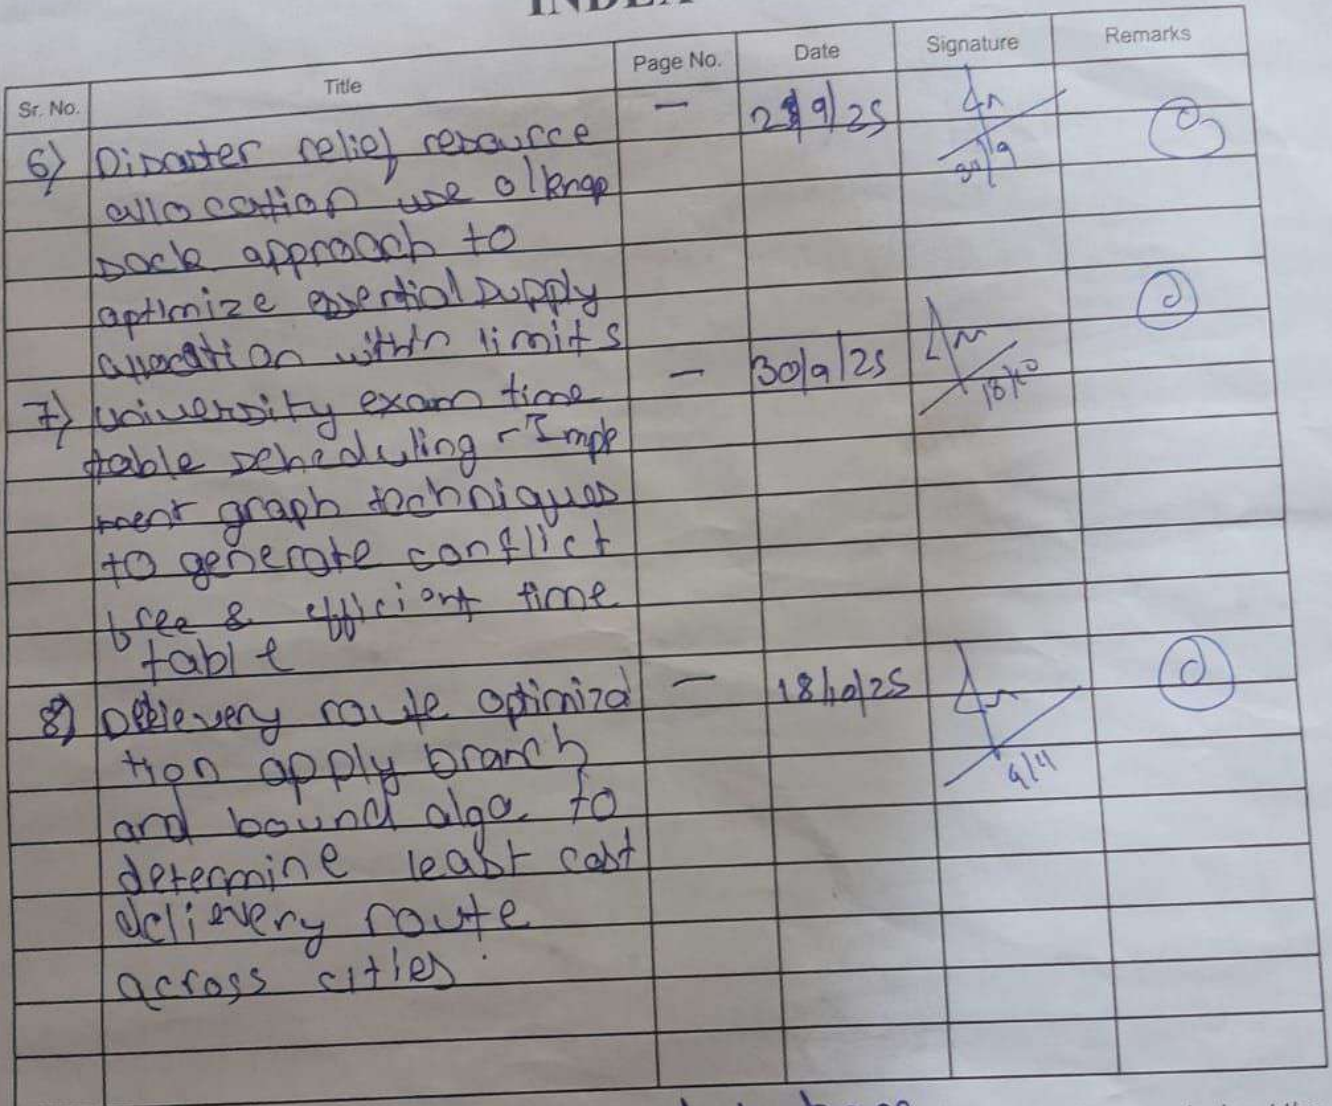 INDEX
Sr. No. Title Page No. Date Signature Remarks
6) Disaster relief resource — 9/25
allocation use 0/1 knap
sack approach to
optimize essential supply
allocation within limits
7) University exam time — 30/9/25 18/10
table scheduling - Imple
ment graph techniques
to generate conflict
free & efficient time
table
8) Delievery route optimiza — 18/10/25
tion apply branch 4/11
and bound algo. to
determine least cost
delievery route
across cities.